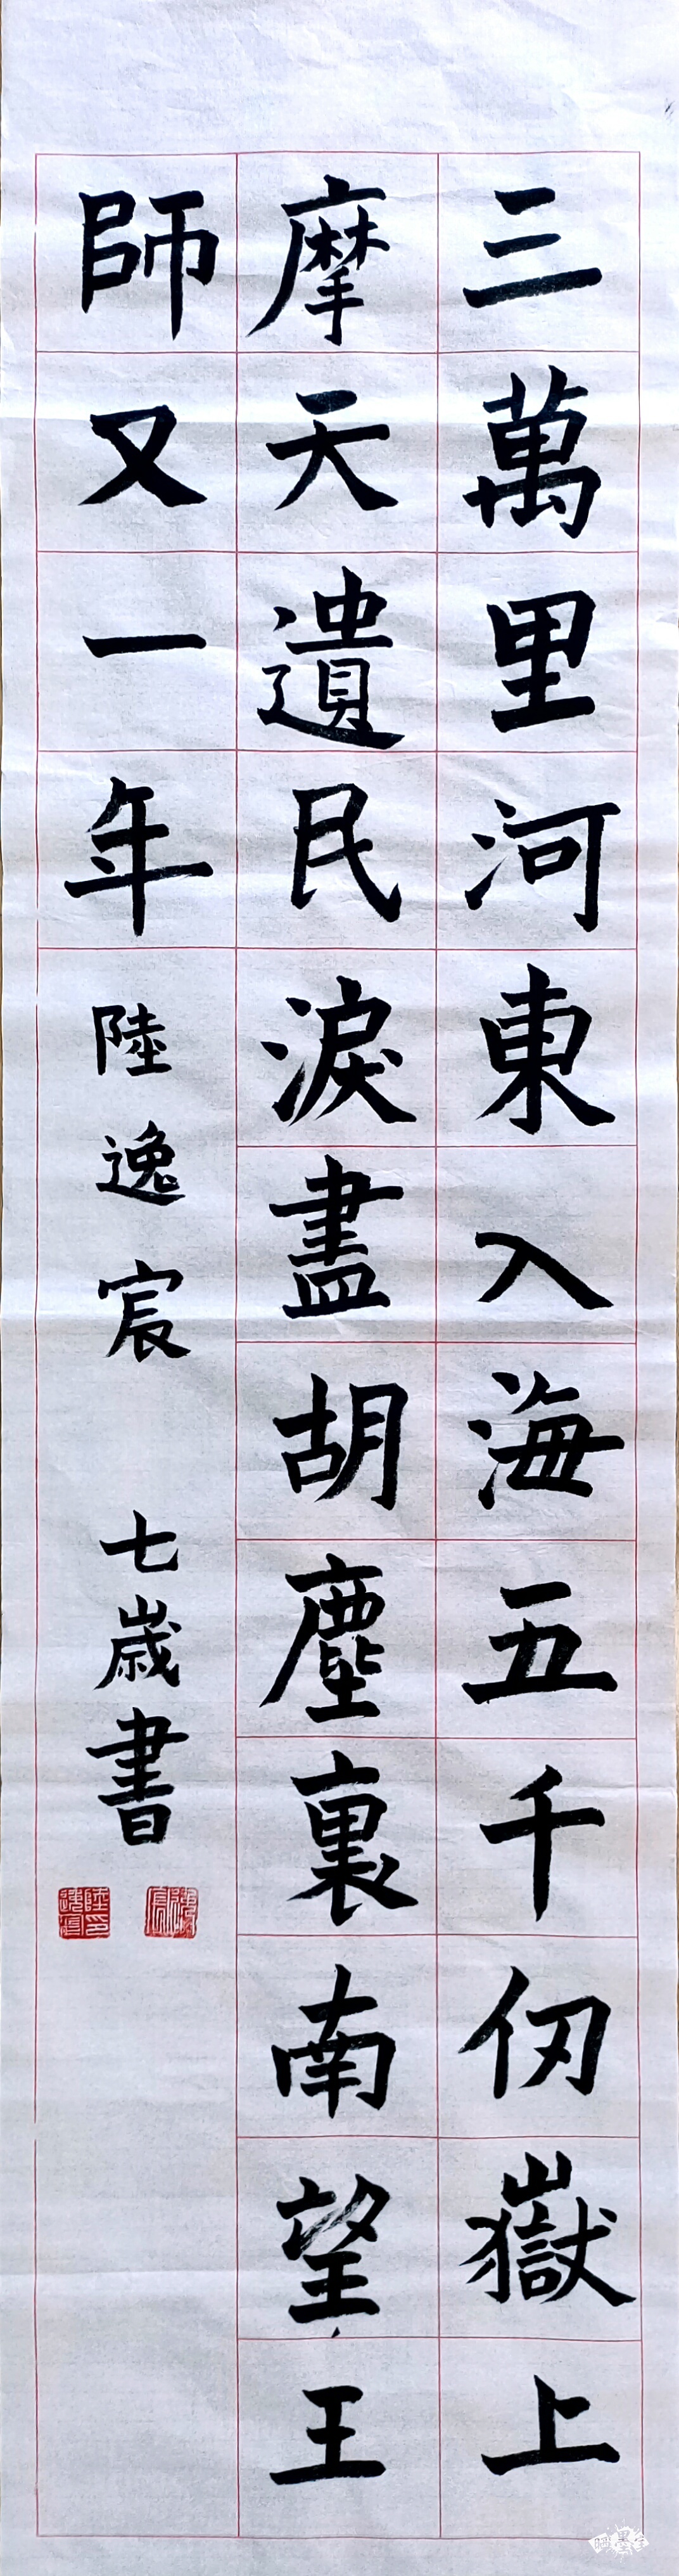 三萬里河東入海五千仞嶽上
摩天遺民淚盡胡塵裏南望王
師又一年
陸逸宸 七歲書